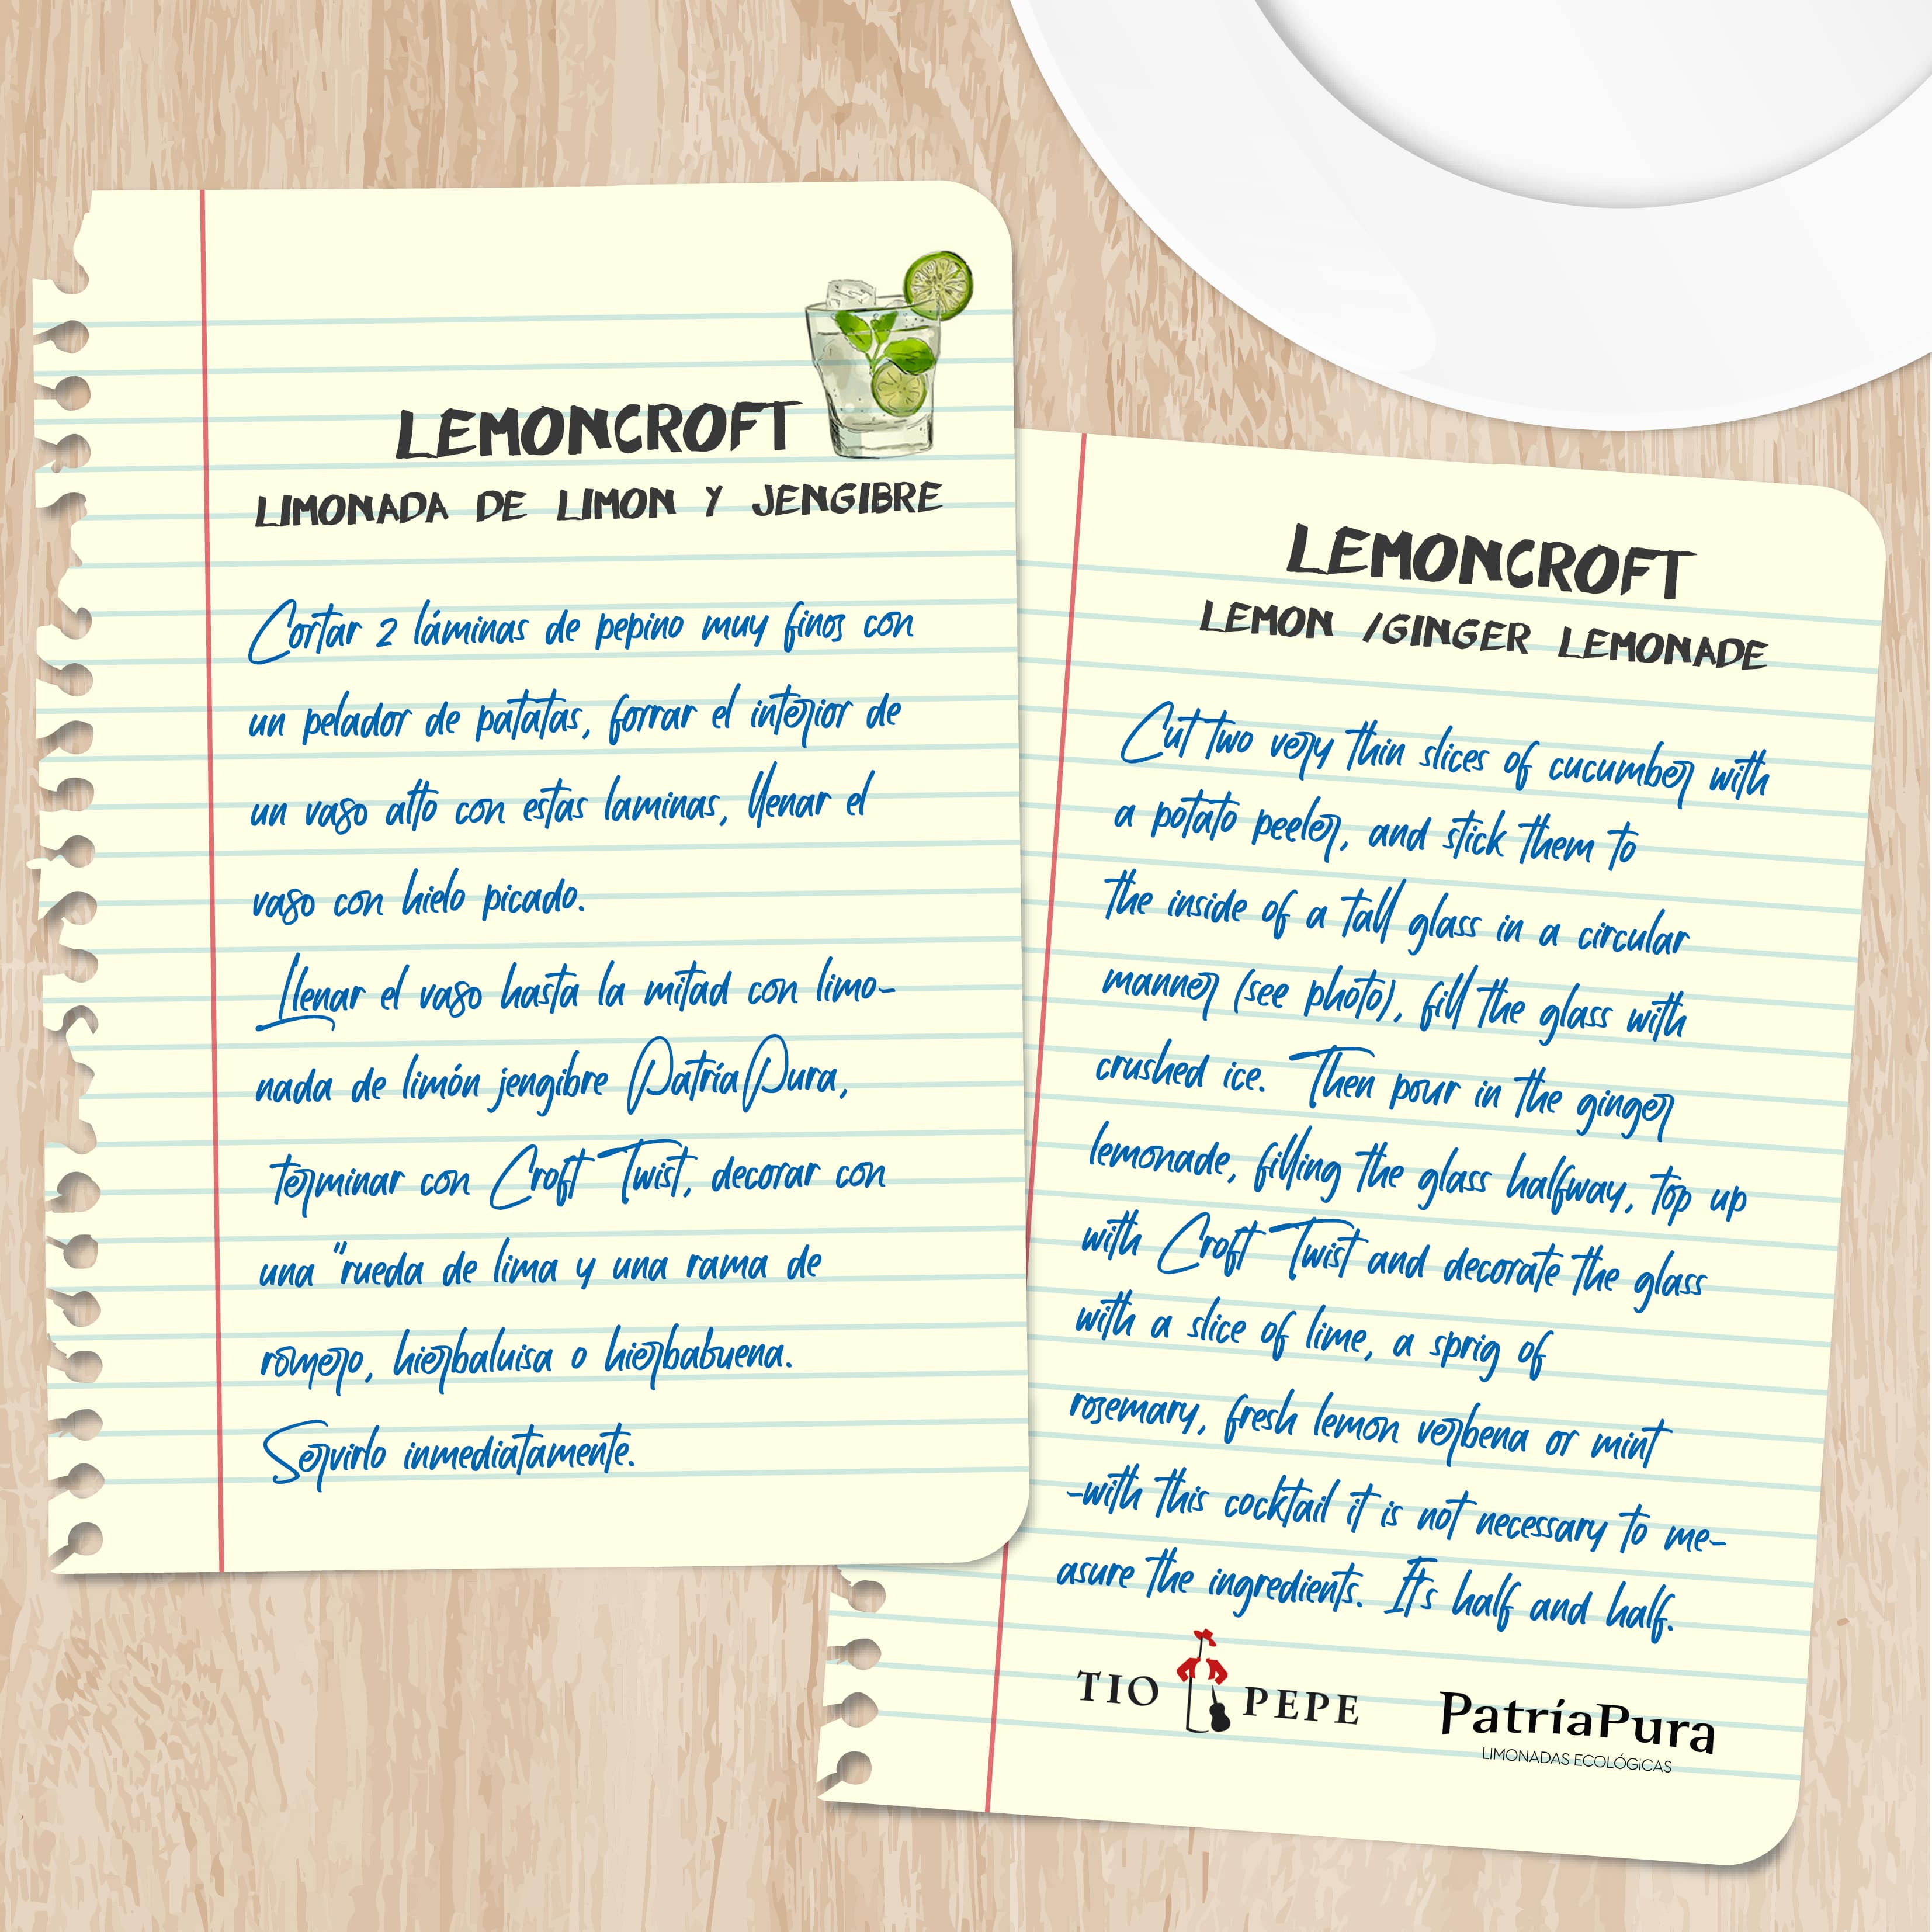 LEMONCROFT
LIMONADA DE LIMON Y JENGIBRE
Cortar 2 láminas de pepino muy finos con
un pelador de patatas, forrar el interior de
un vaso alto con estas laminas, llenar el
vaso con hielo picado.
Llenar el vaso hasta la mitad con limo-
nada de limón jengibre PatríaPura,
terminar con Croft Twist, decorar con
una "rueda de lima y una rama de
romero, hierbaluisa o hierbabuena.
Servirlo inmediatamente.
LEMONCROFT
LEMON /GINGER LEMONADE
Cut two very thin slices of cucumber with
a potato peeler, and stick them to
the inside of a tall glass in a circular
manner (see photo), fill the glass with
crushed ice. Then pour in the ginger
lemonade, filling the glass halfway, top up
with Croft Twist and decorate the glass
with a slice of lime, a sprig of
rosemary, fresh lemon verbena or mint
-with this cocktail it is not necessary to me-
asure the ingredients. It's half and half.
TIO PEPE
PatríaPura
LIMONADAS ECOLÓGICAS